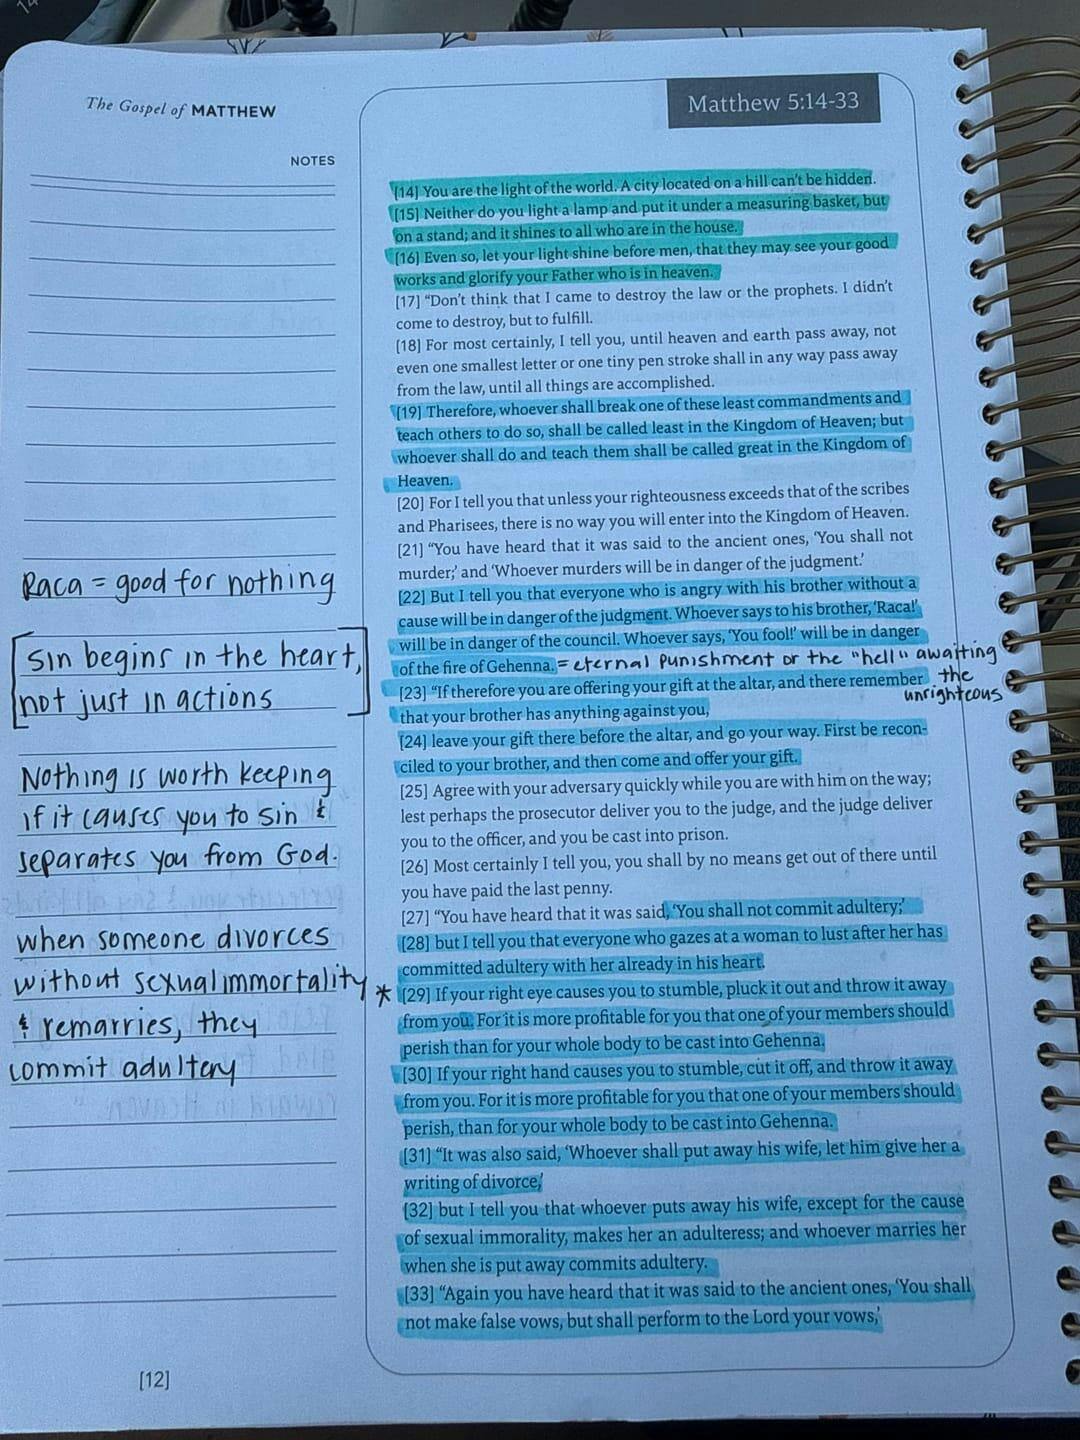 The Gospel of MATTHEW
Matthew 5:14-33
NOTES
[14] You are the light of the world. A city located on a hill can't be hidden.
[15] Neither do you light a lamp and put it under a measuring basket, but
on a stand; and it shines to all who are in the house.
[16] Even so, let your light shine before men, that they may see your good
works and glorify your Father who is in heaven.
[17] “Don't think that I came to destroy the law or the prophets. I didn't
come to destroy, but to fulfill.
[18] For most certainly, I tell you, until heaven and earth pass away, not
even one smallest letter or one tiny pen stroke shall in any way pass away
from the law, until all things are accomplished.
[19] Therefore, whoever shall break one of these least commandments and
teach others to do so, shall be called least in the Kingdom of Heaven; but
whoever shall do and teach them shall be called great in the Kingdom of
Heaven.
[20] For I tell you that unless your righteousness exceeds that of the scribes
and Pharisees, there is no way you will enter into the Kingdom of Heaven.
[21] “You have heard that it was said to the ancient ones, ‘You shall not
murder;’ and ‘Whoever murders will be in danger of the judgment.’
[22] But I tell you that everyone who is angry with his brother without a
cause will be in danger of the judgment. Whoever says to his brother, ‘Raca!’
will be in danger of the council. Whoever says, ‘You fool!’ will be in danger
of the fire of Gehenna. = eternal punishment or the "hell" awaiting
the
unrighteous
[23] “If therefore you are offering your gift at the altar, and there remember
that your brother has anything against you,
[24] leave your gift there before the altar, and go your way. First be recon-
ciled to your brother, and then come and offer your gift.
[25] Agree with your adversary quickly while you are with him on the way;
lest perhaps the prosecutor deliver you to the judge, and the judge deliver
you to the officer, and you be cast into prison.
[26] Most certainly I tell you, you shall by no means get out of there until
you have paid the last penny.
[27] “You have heard that it was said, ‘You shall not commit adultery;’
[28] but I tell you that everyone who gazes at a woman to lust after her has
committed adultery with her already in his heart.
* [29] If your right eye causes you to stumble, pluck it out and throw it away
from you. For it is more profitable for you that one of your members should
perish than for your whole body to be cast into Gehenna.
[30] If your right hand causes you to stumble, cut it off, and throw it away
from you. For it is more profitable for you that one of your members should
perish, than for your whole body to be cast into Gehenna.
[31] “It was also said, ‘Whoever shall put away his wife, let him give her a
writing of divorce,’
[32] but I tell you that whoever puts away his wife, except for the cause
of sexual immorality, makes her an adulteress; and whoever marries her
when she is put away commits adultery.
[33] “Again you have heard that it was said to the ancient ones, ‘You shall
not make false vows, but shall perform to the Lord your vows,’
Raca = good for nothing
[Sin begins in the heart,
not just in actions]
Nothing is worth keeping
if it causes you to sin &
separates you from God.
when someone divorces
without sexual immortality
& remarries, they
commit adultery
[12]